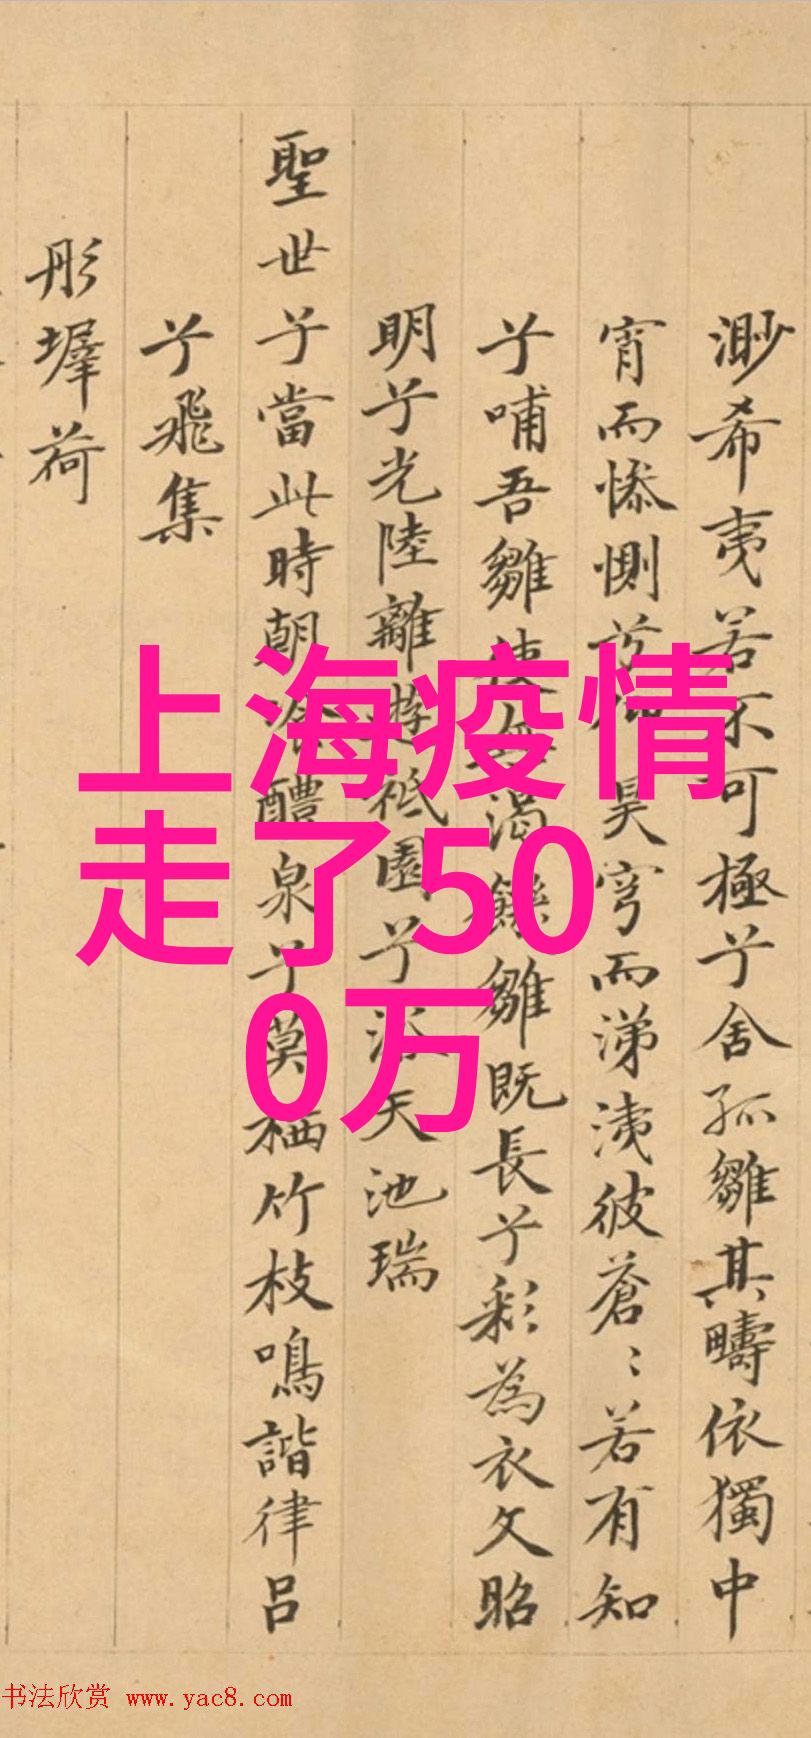 渺希夷若不可極兮舍孤雛其疇依獨中
宵而惨惻兮仰昊穹而涕洟彼蒼〻若有知
兮哺吾雛使無渴饑雛既長兮彩為衣文昭
明兮光陸離遊祗園兮浴天池瑞
聖世兮當此時朝飡醴泉兮莫栖竹枝鳴諧律呂
兮飛集
彤墀荷
上海疫情
走了50
0万
书法欣赏 www.yac8.com